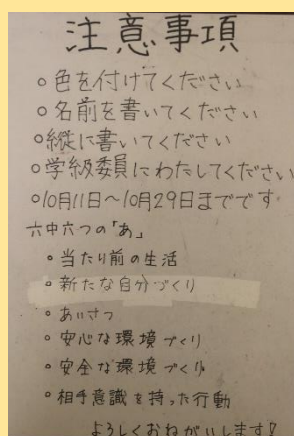 注意事項
○色を付けてください
○名前を書いてください
○縦に書いてください
○学級委員にわたしてください
○10月11日～10月29日までです
六中六つの「あ」
○当たり前の生活
○新たな自分づくり
○あいさつ
○安心な環境づくり
○安全な環境づくり
○相手意識を持った行動
よろしくおねがいします!